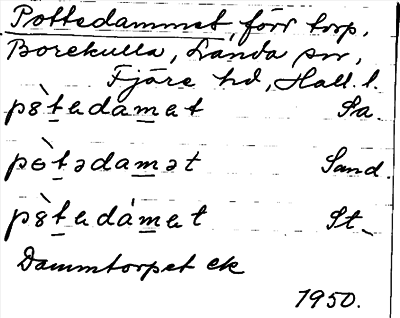 Pottedammet, förr torp,
Borekulla, Landa sn,
Fjäre hd, Hall. l.
pòtedamet Sa.
pòtədamət Sand.
pòtedámet St.
Dammtorpet ek
1950.